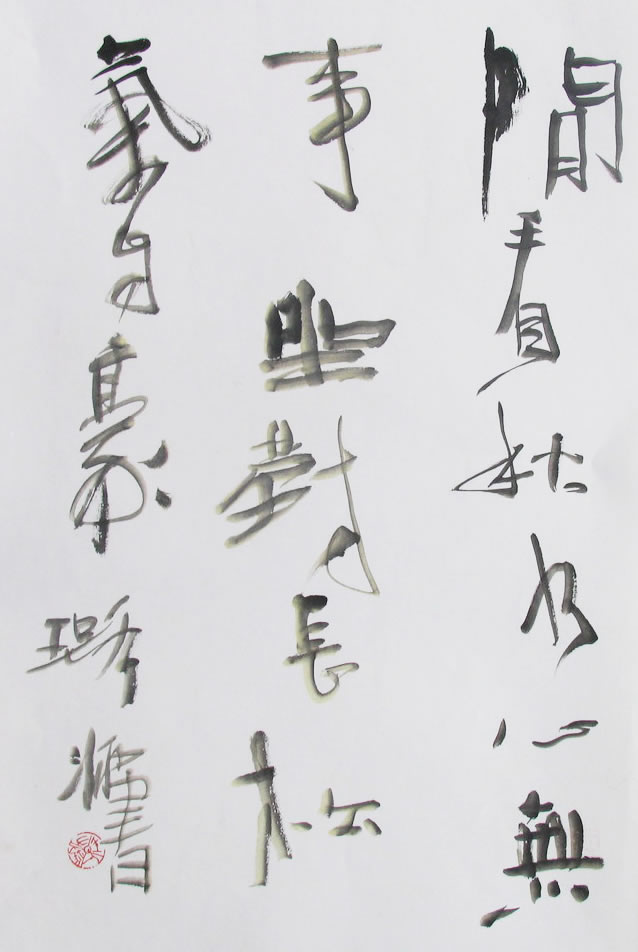 閒看秋水心無
事坐對長松
氣自豪
書